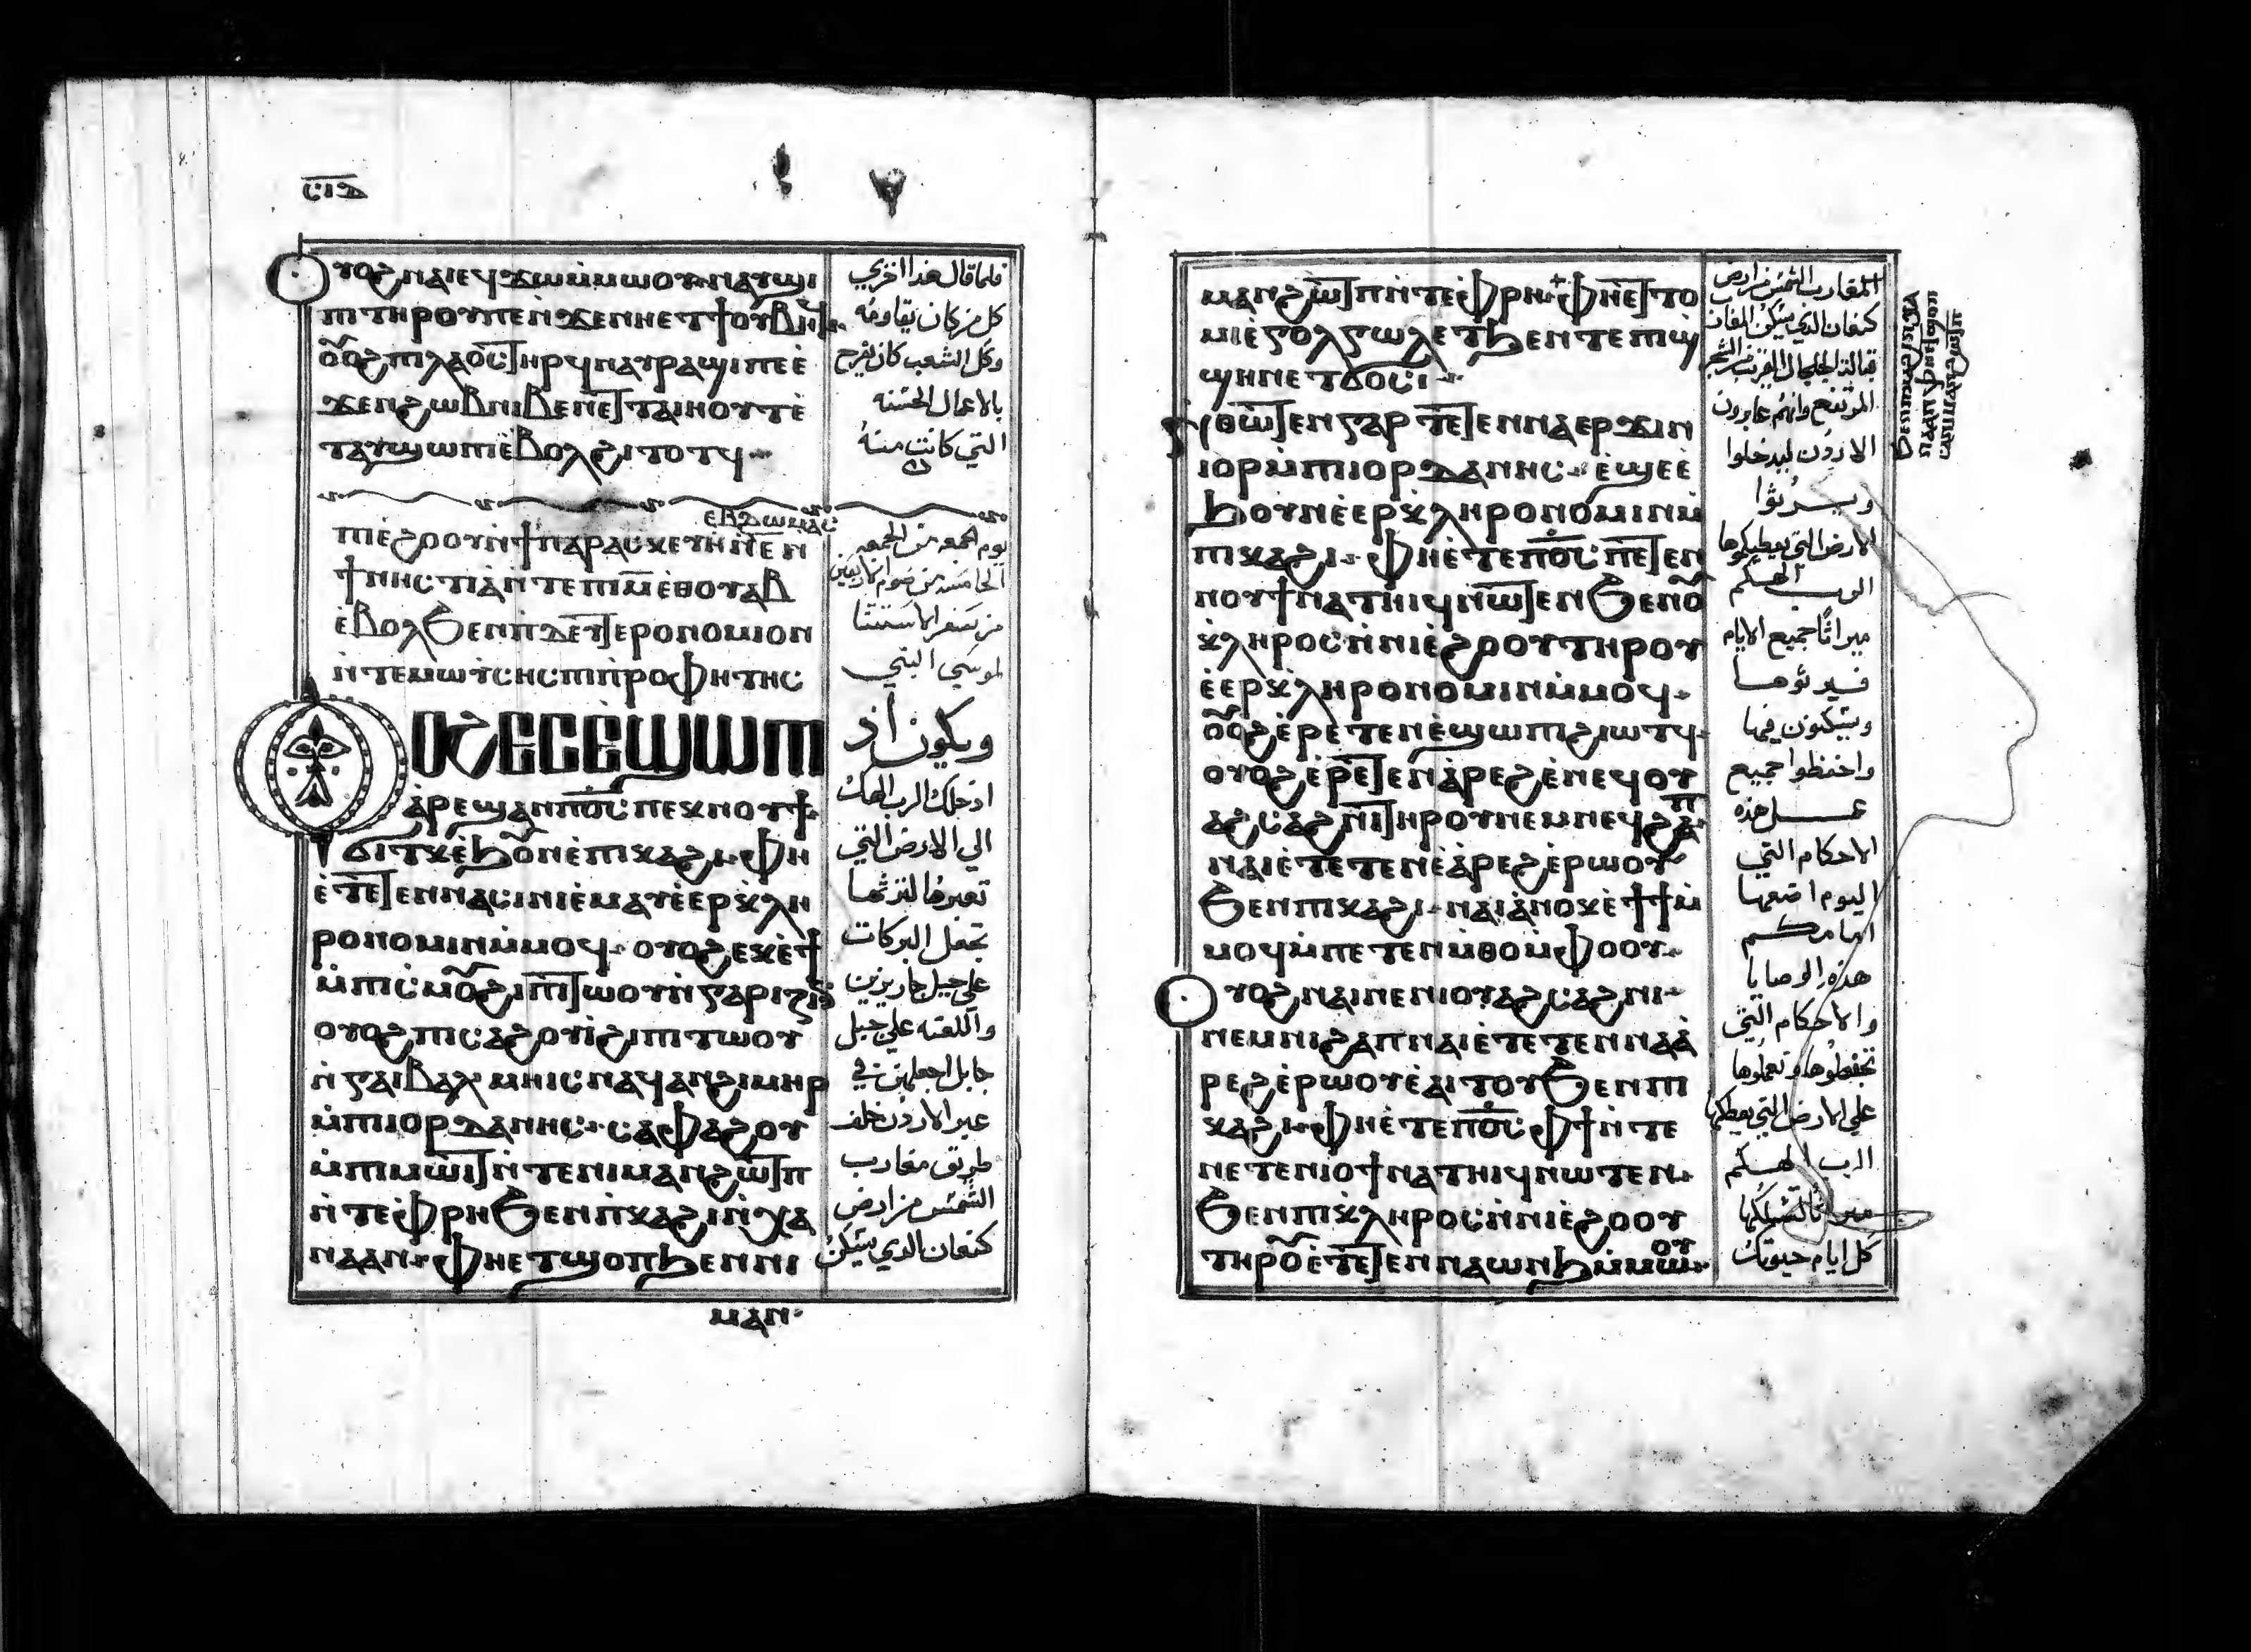 ⲥⲓⲇ
ⲟⲩⲟϩ ⲛⲁⲓ ⲉϥϫⲱ ⲙ̇ⲙⲱⲟⲩ ⲛⲁⲩϣⲓ
ⲡⲓ ⲧⲏⲣⲟⲩ ⲡⲉ ⲛ̇ϫⲉ ⲛⲏ ⲉⲧϯ ⲟⲩⲃⲏϥ
ⲟⲩⲟϩ ⲡⲓⲗⲁⲟⲥ ⲧⲏⲣϥ ⲛⲁⲩⲣⲁϣⲓ ⲡⲉ ⲉ̇
ϫⲉⲛ ϩⲱⲃ ⲛⲓⲃⲉⲛ ⲉⲧⲧⲁⲓⲏⲟⲩⲧ ⲉ̇
ⲧⲁⲩϣⲱⲡⲓ ⲉ̇ⲃⲟⲗ ϩⲓⲧⲟⲧϥ
فلما قال هذا اخزي
كل من كان يقاومه
وكل الشعب كان يفرح
بالاعمال الحسنه
التي كانت منه
ⲉⲃⲇⲱⲙⲁⲥ
ⲡⲓⲉ̇ϩⲟⲟⲩ ⲛ̇ϯⲡⲁⲣⲁⲥⲕⲉⲩⲏ ⲛ̇ⲧⲉ ⲛ
ϯⲛⲏⲥⲧⲓⲁ̇ ⲛ̇ⲧⲉ ⲡⲓⲙ̅ ⲉ̇ⲑⲟⲩⲁⲃ
ⲉ̇ⲃⲟⲗ ϧⲉⲛ ⲡ̇ⲇⲉⲩⲧⲉⲣⲟⲛⲟⲙⲓⲟⲛ
ⲛ̇ⲧⲉ ⲙⲱⲩ̇ⲥⲏⲥ ⲡⲓⲡ̇ⲣⲟⲫⲏⲧⲏⲥ
يوم الجمعه من الجمعه
الخامسه من صوم الاربعين
من سفر الاستثنا
لموسي النبي
ⲟⲩⲟϩ ⲉⲥⲉ̇ϣⲱⲡⲓ
ⲁ̇ⲣⲉϣⲁⲛ ⲡϭⲟⲓⲥ ⲡⲉⲕⲛⲟⲩϯ
ϭⲓⲧⲕ ⲉ̇ϧⲟⲩⲛ ⲉ̇ⲡⲓⲕⲁϩⲓ ⲫⲏ
ⲉ̇ⲧⲉⲧⲉⲛⲛⲁⲥⲓⲛⲓ ⲉ̇ⲙⲁⲩ ⲉ̇ⲉⲣⲕ̇ⲗⲏ
ⲣⲟⲛⲟⲙⲓⲛ ⲙ̇ⲙⲟϥ ⲟⲩⲟϩ ⲉⲕⲉ̇ϯ
ⲙ̇ⲡⲓⲥ̇ⲙⲟⲩ ϩⲓ ⲡⲓⲧⲱⲟⲩ ⲛ̇ⲅⲁⲣⲓⲍⲓⲛ
ⲟⲩⲟϩ ⲡⲓⲥⲁϩⲟⲩⲓ̇ ϩⲓ ⲡⲓⲧⲱⲟⲩ
ⲛ̇ⲅⲁⲓⲃⲁⲗ ⲙⲏ ⲓⲥ ⲛⲁϥⲁⲛ ϩⲓⲙⲏⲣ
ⲙ̇ⲡⲓⲓⲟⲣⲇⲁⲛⲏⲥ ⲥⲁⲫⲁϩⲟⲩ
ⲙ̇ⲡⲓⲙⲱⲓⲧ ⲛ̇ⲧⲉ ⲛⲓⲙⲁⲛϩⲱⲧⲡ
ⲛ̇ⲧⲉ ⲫ̇ⲣⲏ ϧⲉⲛ ⲡ̇ⲕⲁϩⲓ ⲛ̇ⲭⲁ
ⲛⲁⲁⲛ ⲫⲏ ⲉⲧϣⲟⲡ ϧⲉⲛ ⲛⲓ
ⲙⲁⲛ
ويكون اذ
ادخلك الرب الهك
الي الارض التي
تعبرها لترثها
تجعل البركات
علي جبل جاريزين
واللعنه علي جبل
جابل اجعلهن في
عبر الاردن خلف
طريق مغارب
الشمس من ارض
كنعان الذي يسكن
ⲙⲁⲛϩⲱⲧⲡ ⲛ̇ⲧⲉ ⲫ̇ⲣⲏ ⲫⲏ ⲉⲧⲧⲟ
ⲙⲓ ⲉ̇ⲅⲟⲗⲅⲱⲗ ⲉⲧϧⲉⲛⲧ ⲉ ⲡⲓϣ̇
ϣⲏⲛ ⲉⲧϭⲟⲥⲓ
ⲛ̇ⲑⲱⲧⲉⲛ ⲅⲁⲣ ⲧⲉⲧⲉⲛⲛⲁⲉⲣϫⲓⲛ
ⲓⲟⲣ ⲙ̇ⲡⲓⲓⲟⲣⲇⲁⲛⲏⲥ ⲉ̇ϣⲉ ⲉ̇
ϧⲟⲩⲛ ⲉ̇ⲉⲣⲕ̇ⲗⲏⲣⲟⲛⲟⲙⲓⲛ ⲙ̇
ⲡⲓⲕⲁϩⲓ ⲫⲏ ⲉ̇ⲧⲉ ⲡϭⲟⲓⲥ ⲡⲉⲧⲉⲛ
ⲛⲟⲩϯ ⲛⲁⲧⲏⲓϥ ⲛⲱⲧⲉⲛ ϧⲉⲛ ⲟⲩ
ⲕ̇ⲗⲏⲣⲟⲥ ⲛ̇ⲛⲓⲉ̇ϩⲟⲟⲩ ⲧⲏⲣⲟⲩ
ⲉ̇ⲉⲣⲕ̇ⲗⲏⲣⲟⲛⲟⲙⲓⲛ ⲙ̇ⲙⲟϥ
ⲟⲩⲟϩ ⲉ̇ⲣⲉ̇ⲧⲉⲛⲉ̇ϣⲱⲡⲓ ϩⲓⲱⲧϥ
ⲟⲩⲟϩ ⲉ̇ⲣⲉ̇ⲧⲉⲛⲁ̇ⲣⲉϩ ⲉ̇ⲛⲉϥⲟⲩ
ⲁϩⲥⲁϩⲛⲓ ⲧⲏⲣⲟⲩ ⲛⲉⲙ ⲛⲉϥϩⲁⲡ
ⲛⲁⲓ ⲉ̇ⲧⲉⲧⲉⲛⲉ̇ⲁ̇ⲣⲉϩ ⲉ̇ⲣⲱⲟⲩ
ϧⲉⲛ ⲡⲓⲕⲁϩⲓ ⲛⲁⲓ ⲁ̇ⲛⲟⲕ ⲉ̇ϯϯ ⲙ̇
ⲙⲟϥ ⲙ̇ⲡⲉⲧⲉⲛⲙ̇ⲑⲟ ⲙ̇ⲫⲟⲟⲩ
ⲟⲩⲟϩ ⲛⲁⲓ ⲛⲉ ⲛⲓⲟⲩⲁϩⲥⲁϩⲛⲓ
ⲛⲉⲙ ⲛⲓϩⲁⲡ ⲛⲁⲓ ⲉ̇ⲧⲉⲧⲉⲛⲛⲁⲁ̇
ⲣⲉϩ ⲉ̇ⲣⲱⲟⲩ ⲉ̇ⲁⲓⲧⲟⲩ ϧⲉⲛ ⲡⲓ
ⲕⲁϩⲓ ⲫⲏ ⲉ̇ⲧⲉ ⲡϭⲟⲓⲥ ⲫϯ ⲛ̇ⲧⲉ
ⲛⲉⲧⲉⲛⲓⲟϯ ⲛⲁⲧⲏⲓϥ ⲛⲱⲧⲉⲛ
ϧⲉⲛ ⲡⲓⲕ̇ⲗⲏⲣⲟⲥ ⲛ̇ⲛⲓⲉ̇ϩⲟⲟⲩ
ⲧⲏⲣⲟⲩ ⲉ̇ⲧⲉⲧⲉⲛⲛⲁⲱⲛϧ ⲙ̇ⲙⲱⲟⲩ
المغارب الشمس من ارض
كنعان الذي يسكن المغارب
قبالة الجلجال القريب من الشجر
المرتفع وانتم عابرون
الاردن لتدخلوا
وترثوا
الارض التي يعطيكوها
الرب الهكم
ميراثا جميع الايام
فترثوها
وتسكنون فيها
واحفظوا جميع
عمل هذه
الاحكام التي
اليوم اضعها
امامكم
هذه الوصايا
والاحكام التي
تحفظوها وتعملوها
علي الارض التي يعطيكها
الرب الهكم
ميراثا لتملكها
كل ايام حيوتك